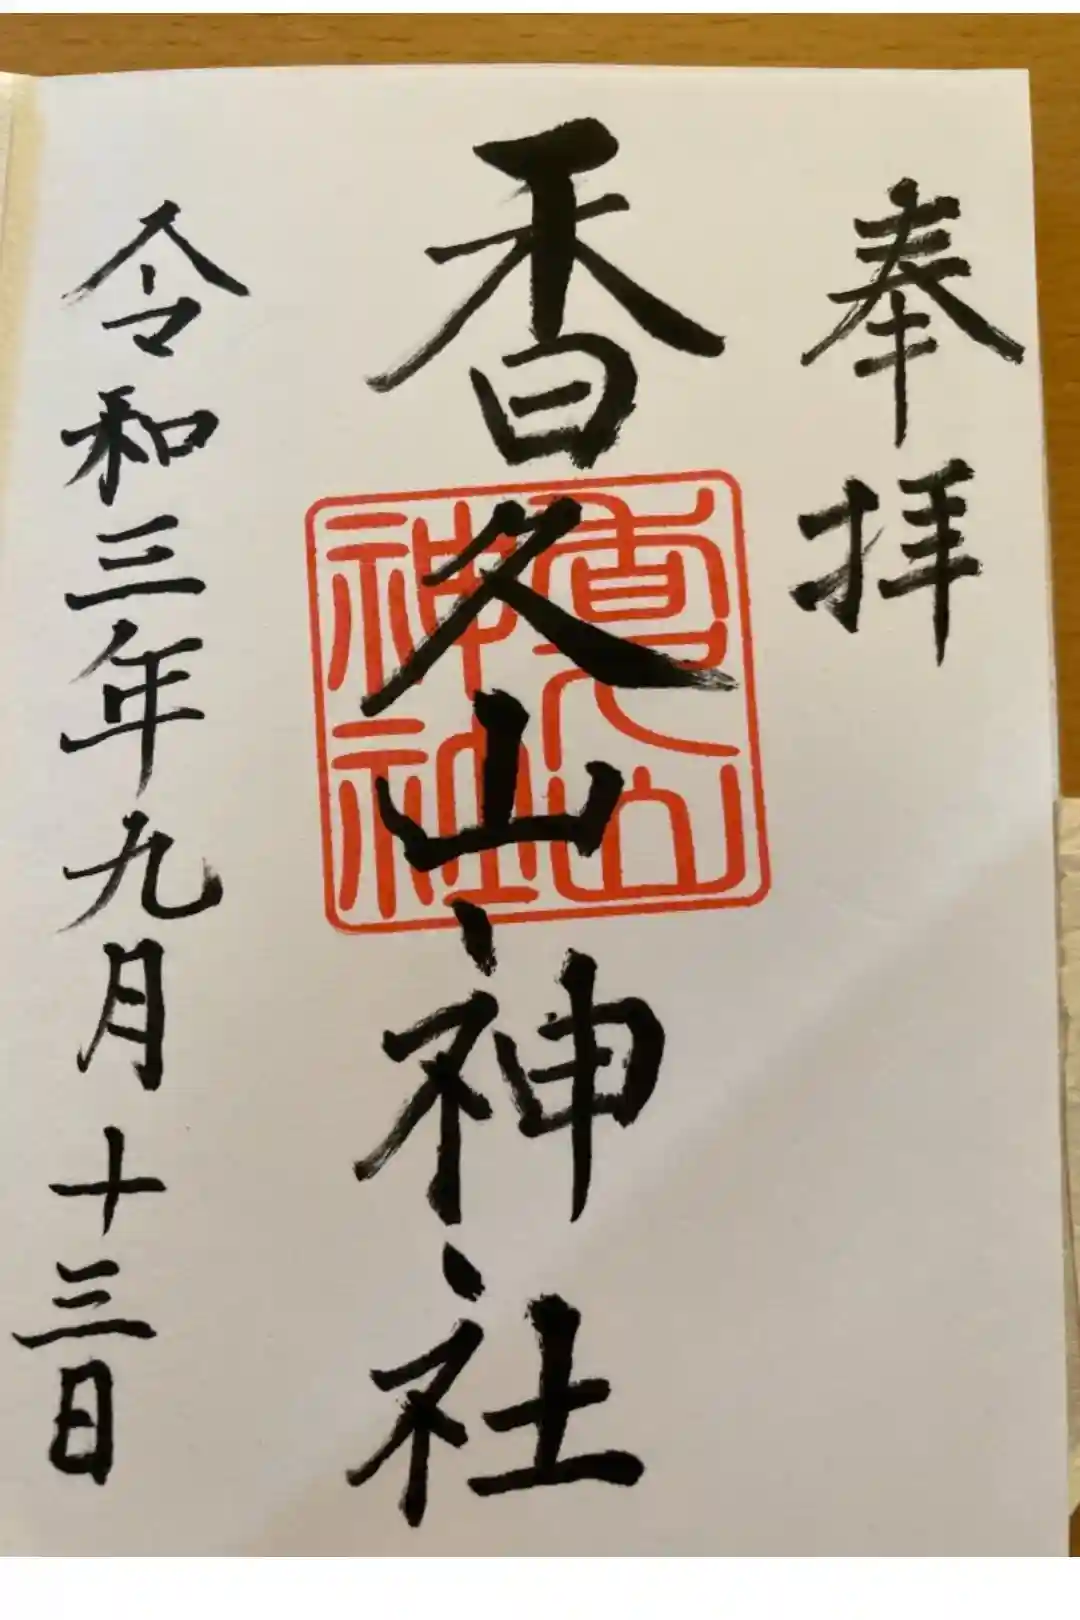 奉拝
香久山神社
香久山神社
令和三年九月十三日